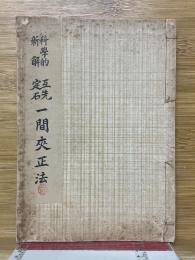 科学的
新解
互先
定石
一間夾正法